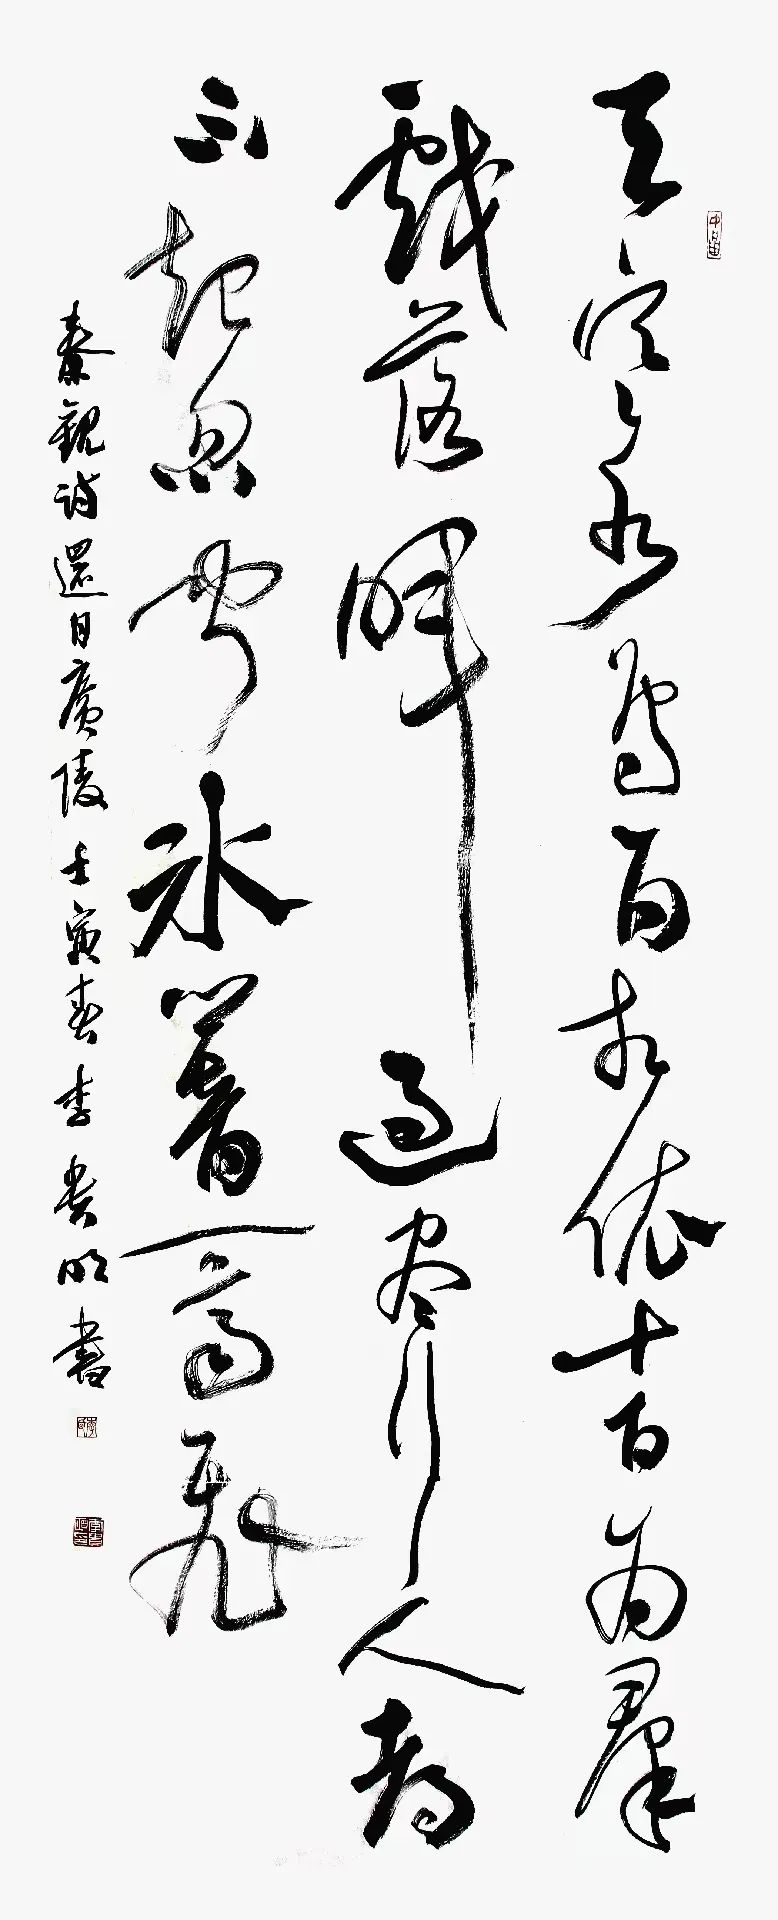 天寒水鸟自相依十百为羣
戲落暉過尽行人都
不起忽闻冰響一齊飛
秦觀诗還自廣陵壬寅春李贵明書